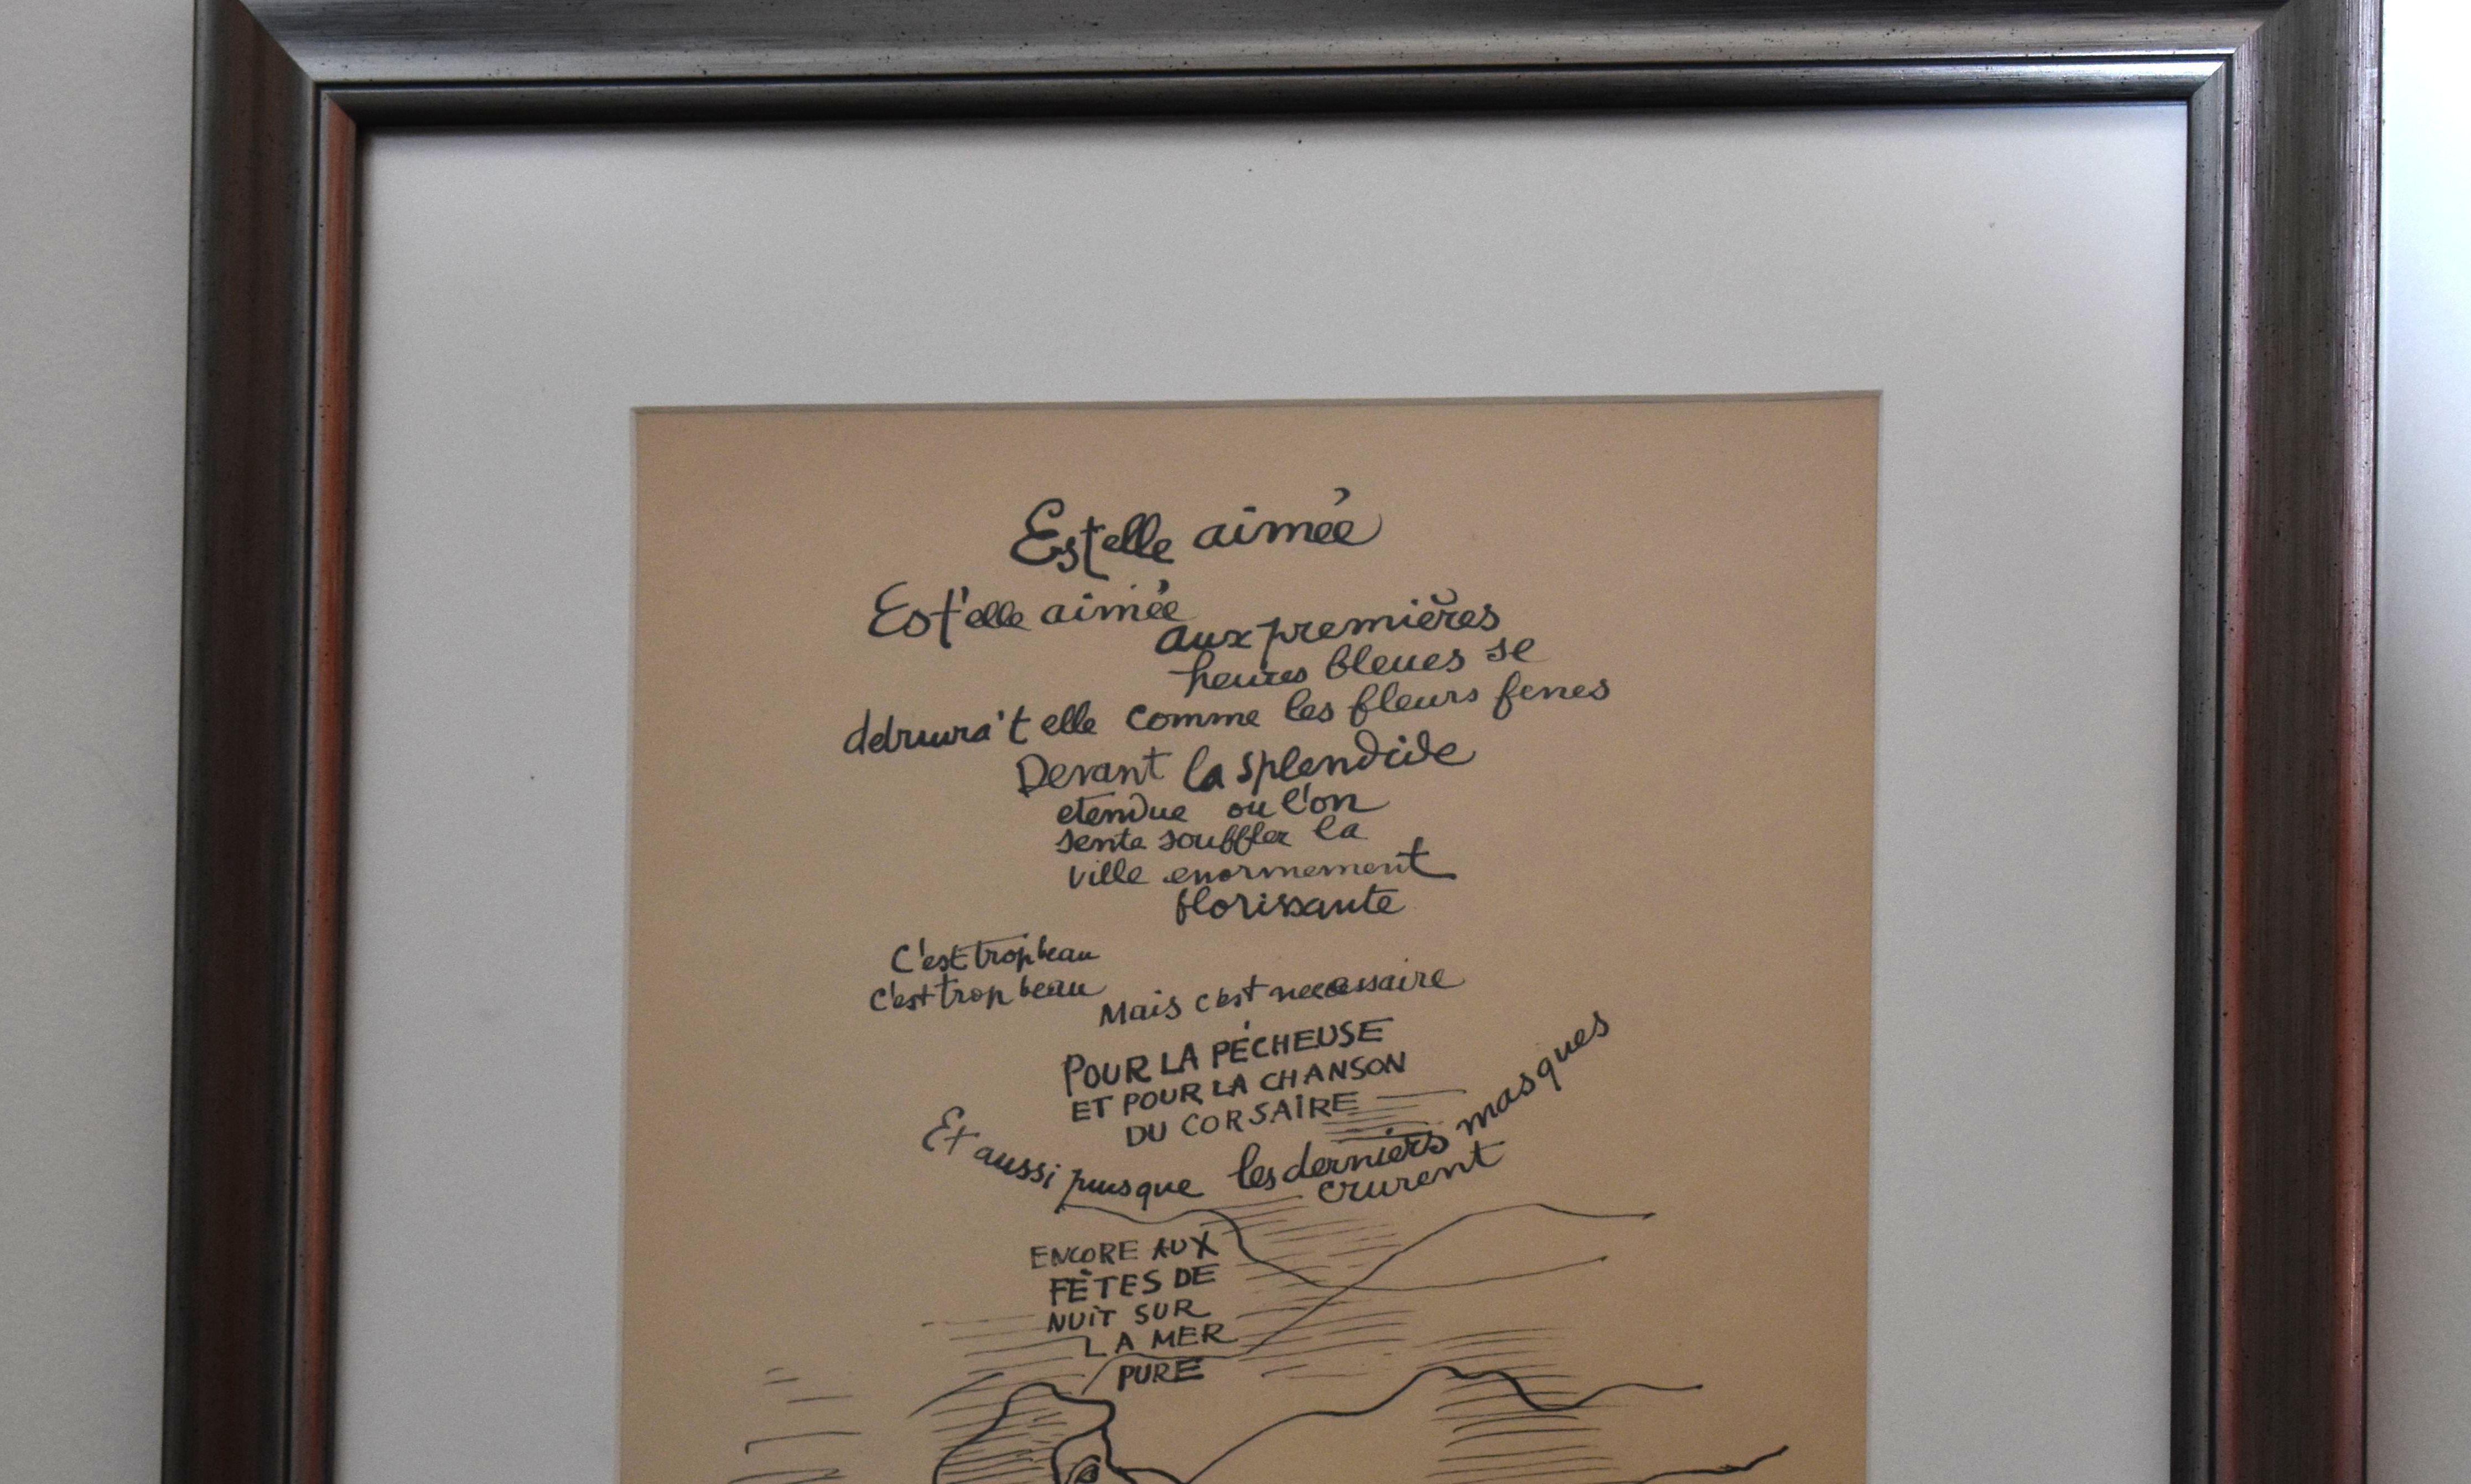 Estelle aimée
Est'elle aimée
aux premières
heures bleues se
detruira't elle comme les fleurs fenes
Devant la splendide
etendue ou l'on
sente souffler la
ville enormement
florissante
C'est trop beau
c'est trop beau
Mais c'est necessaire
POUR LA PÉCHEUSE
ET POUR LA CHANSON
DU CORSAIRE
Et aussi puisque les derniers masques
crurent
ENCORE AUX
FÊTES DE
NUIT SUR
LA MER
PURE